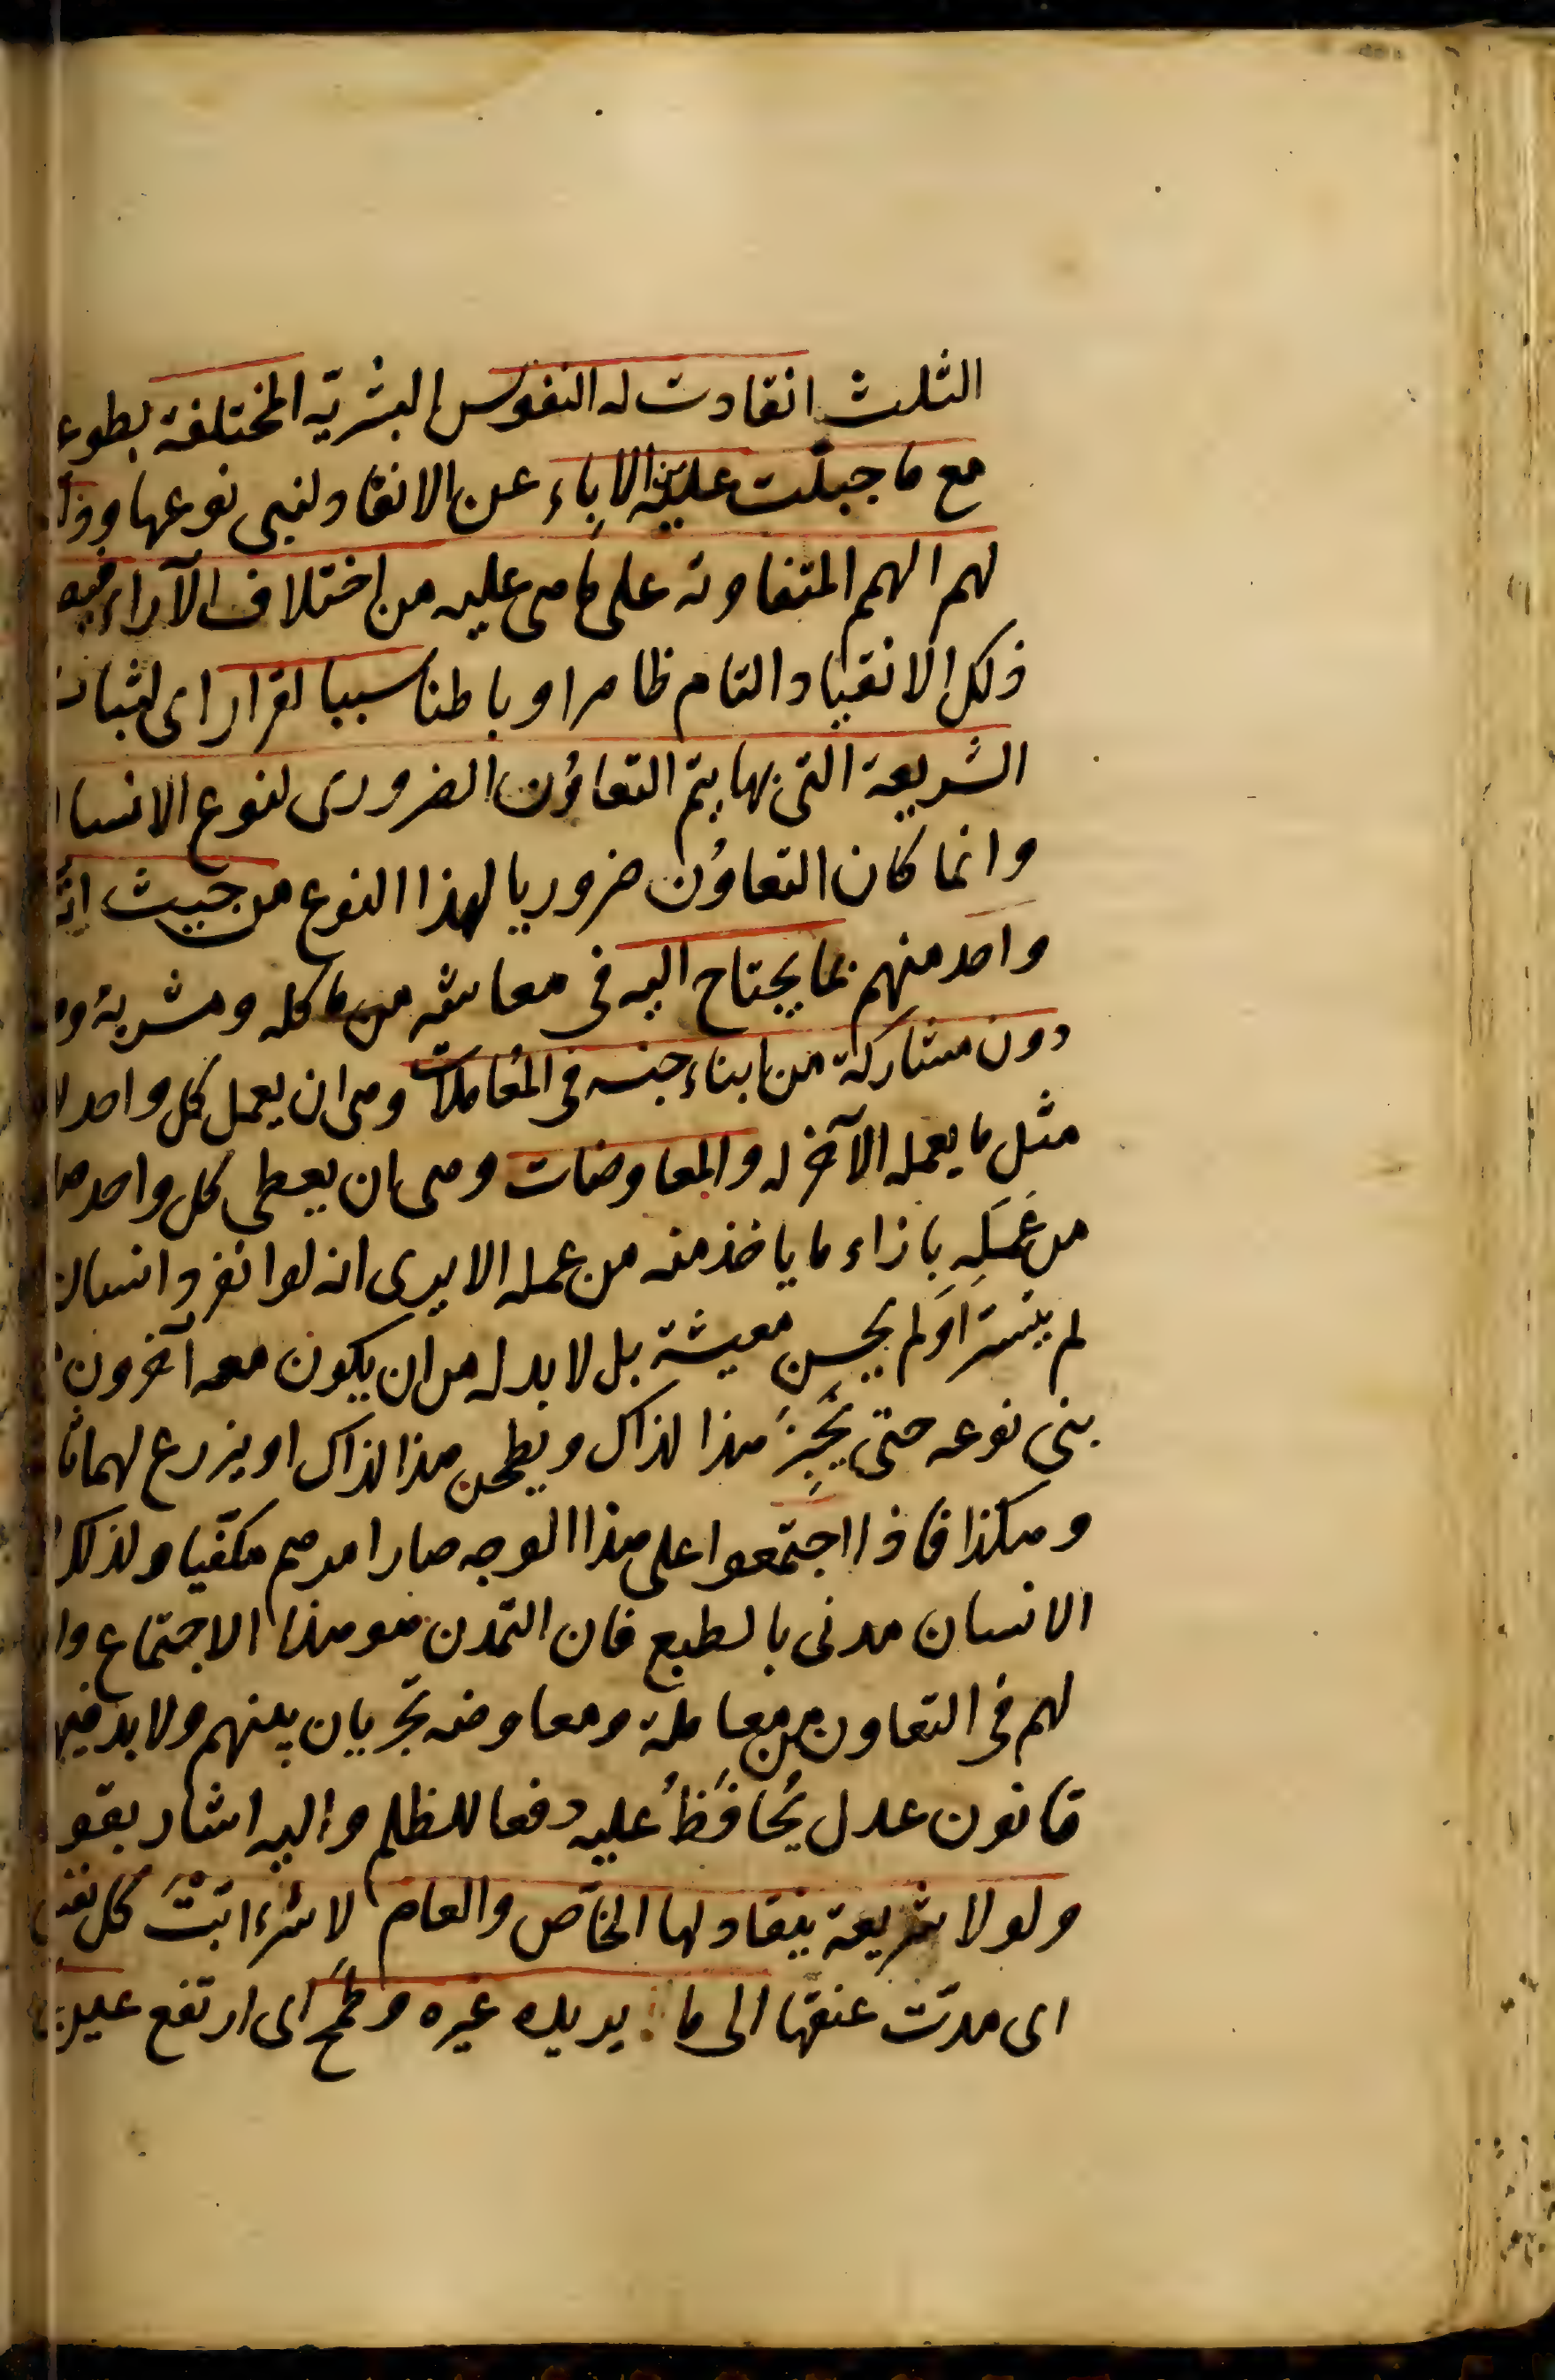 الثلث انقادت له النفوس البشريّة المختلفة بطوع
مع ما جبلت عليه من الإباء عن الانقياد لبنى نوعها وذل
لهم الهمم المتفاوتة على ما هى عليه من اختلاف الآراء فيصير
ذلك الانقياد التام ظاهرا وباطنا سببا لقرار اى لثبات
الشريعة التى بها يتم التعاوُن الضرورى لنوع الانسان
وانما كان التعاوُن ضروريا لهذا النوع من حيث انه
واحد منهم بما يحتاج اليه فى معاشه من مأكله ومشربه و
دون مشاركة من ابناء جنسه فى المُعاملات وهى ان يعمل كل واحد
مثل ما يعمله الآخر له والمعاوضات وهى ان يعطى كل واحد صا
من عَمَلِهِ بازاء ما ياخذ منه من عمله الا يرى انه لو انفرد انسان
لم يتيسّر او لم يحسن معيشته بل لا بد له من ان يكون معه آخرون
بنى نوعه حتى يَخْبِزَ هذا لذاك ويطحن هذا لذاك او يزرع لهما ثا
وهكذا فاذا اجتمعوا على هذا الوجه صار امرهم مكفيا ولذلك
الانسان مدنى بالطبع فان التمدن هو هذا الاجتماع وا
لهم فى التعاون من معاملة ومعاوضه تجريان بينهم ولا بد فيها
قانون عدل يُحافَظُ عليه دفعا للظلم واليه اشار بقو
ولولا شريعة ينقاد لها الخاص والعام لاشرءابّتْ كل نفس
اى مدّت عنقها الى ما يريده غيره وطمح اى ارتفع عين